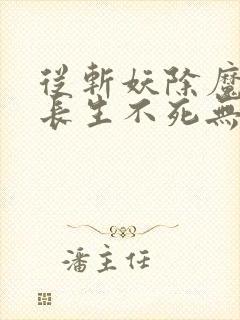 從斬妖除魔
長生不死無
潘主任